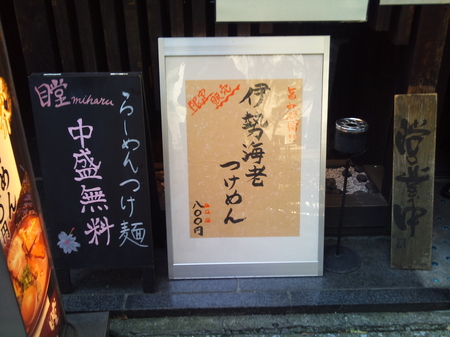 目堂 miharu
らーめんつけ麺
中盛無料
限定
販売
伊勢海老
つけめん
八〇〇円
営業中